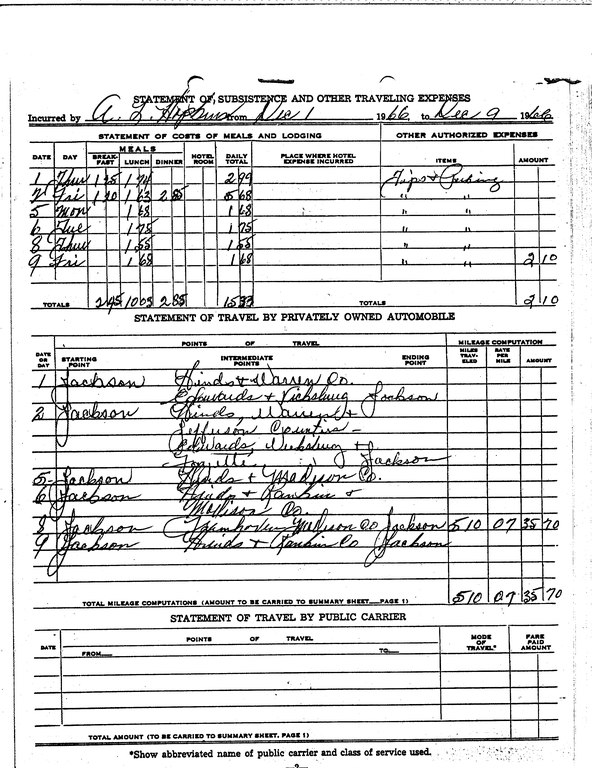 STATEMENT OF SUBSISTENCE AND OTHER TRAVELING EXPENSES
Incurred by A. L. Hopkins from Dec 1 1966, to Dec 9 1966
STATEMENT OF COSTS OF MEALS AND LODGING OTHER AUTHORIZED EXPENSES
MEALS
DATE DAY BREAK-FAST LUNCH DINNER HOTEL ROOM DAILY TOTAL PLACE WHERE HOTEL EXPENSE INCURRED ITEMS AMOUNT
1 Thur 1 25 1 74 2 99 Tips & Parking
2 Fri 1 20 1 63 2 85 5 68 " "
5 Mon 1 68 1 68 " "
6 Tue 1 75 1 75 " "
8 Thur 1 55 1 55 " "
9 Fri 1 68 1 68 " " 2 10
TOTALS 2 45 10 03 2 85 15 33 TOTALS 2 10
STATEMENT OF TRAVEL BY PRIVATELY OWNED AUTOMOBILE
POINTS OF TRAVEL MILEAGE COMPUTATION
DATE OR DAY STARTING POINT INTERMEDIATE POINTS ENDING POINT MILES TRAV-ELED RATE PER MILE AMOUNT
1 Jackson Hinds & Warren Co.
Edwards & Vicksburg Jackson
2 Jackson Hinds, Warren &
Jefferson Counties -
Edwards, Vicksburg &
Fayette Jackson
5- Jackson Hinds & Madison Co.
6 Jackson Hinds & Rankin &
Madison Co.
8 Jackson Madison Co Jackson 510 07 35 70
9 Jackson Hinds & Rankin Co Jackson
TOTAL MILEAGE COMPUTATIONS (AMOUNT TO BE CARRIED TO SUMMARY SHEET—PAGE 1) 510 07 35 70
STATEMENT OF TRAVEL BY PUBLIC CARRIER
DATE POINTS OF TRAVEL MODE OF TRAVEL* FARE PAID AMOUNT
FROM TO
TOTAL AMOUNT (TO BE CARRIED TO SUMMARY SHEET, PAGE 1)
*Show abbreviated name of public carrier and class of service used.
—2—